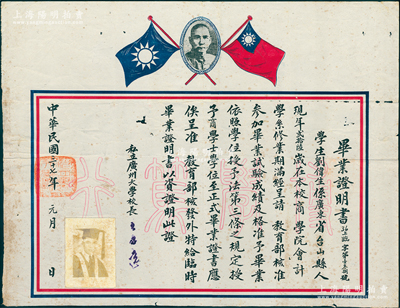 畢業證明書
學生劉偉生係廣東省台山縣人
現年貳拾陸歲在本校商學院會計
學系修業期滿經呈請 教育部核准
參加畢業試驗成績及格准予畢業並
依照學位授予法第三條之規定授
予商學士學位至正式畢業證書應
俟呈准 教育部核發外特給臨時
畢業證明書以資證明此證
私立廣州大學校長
中華民國三十七年元月 日